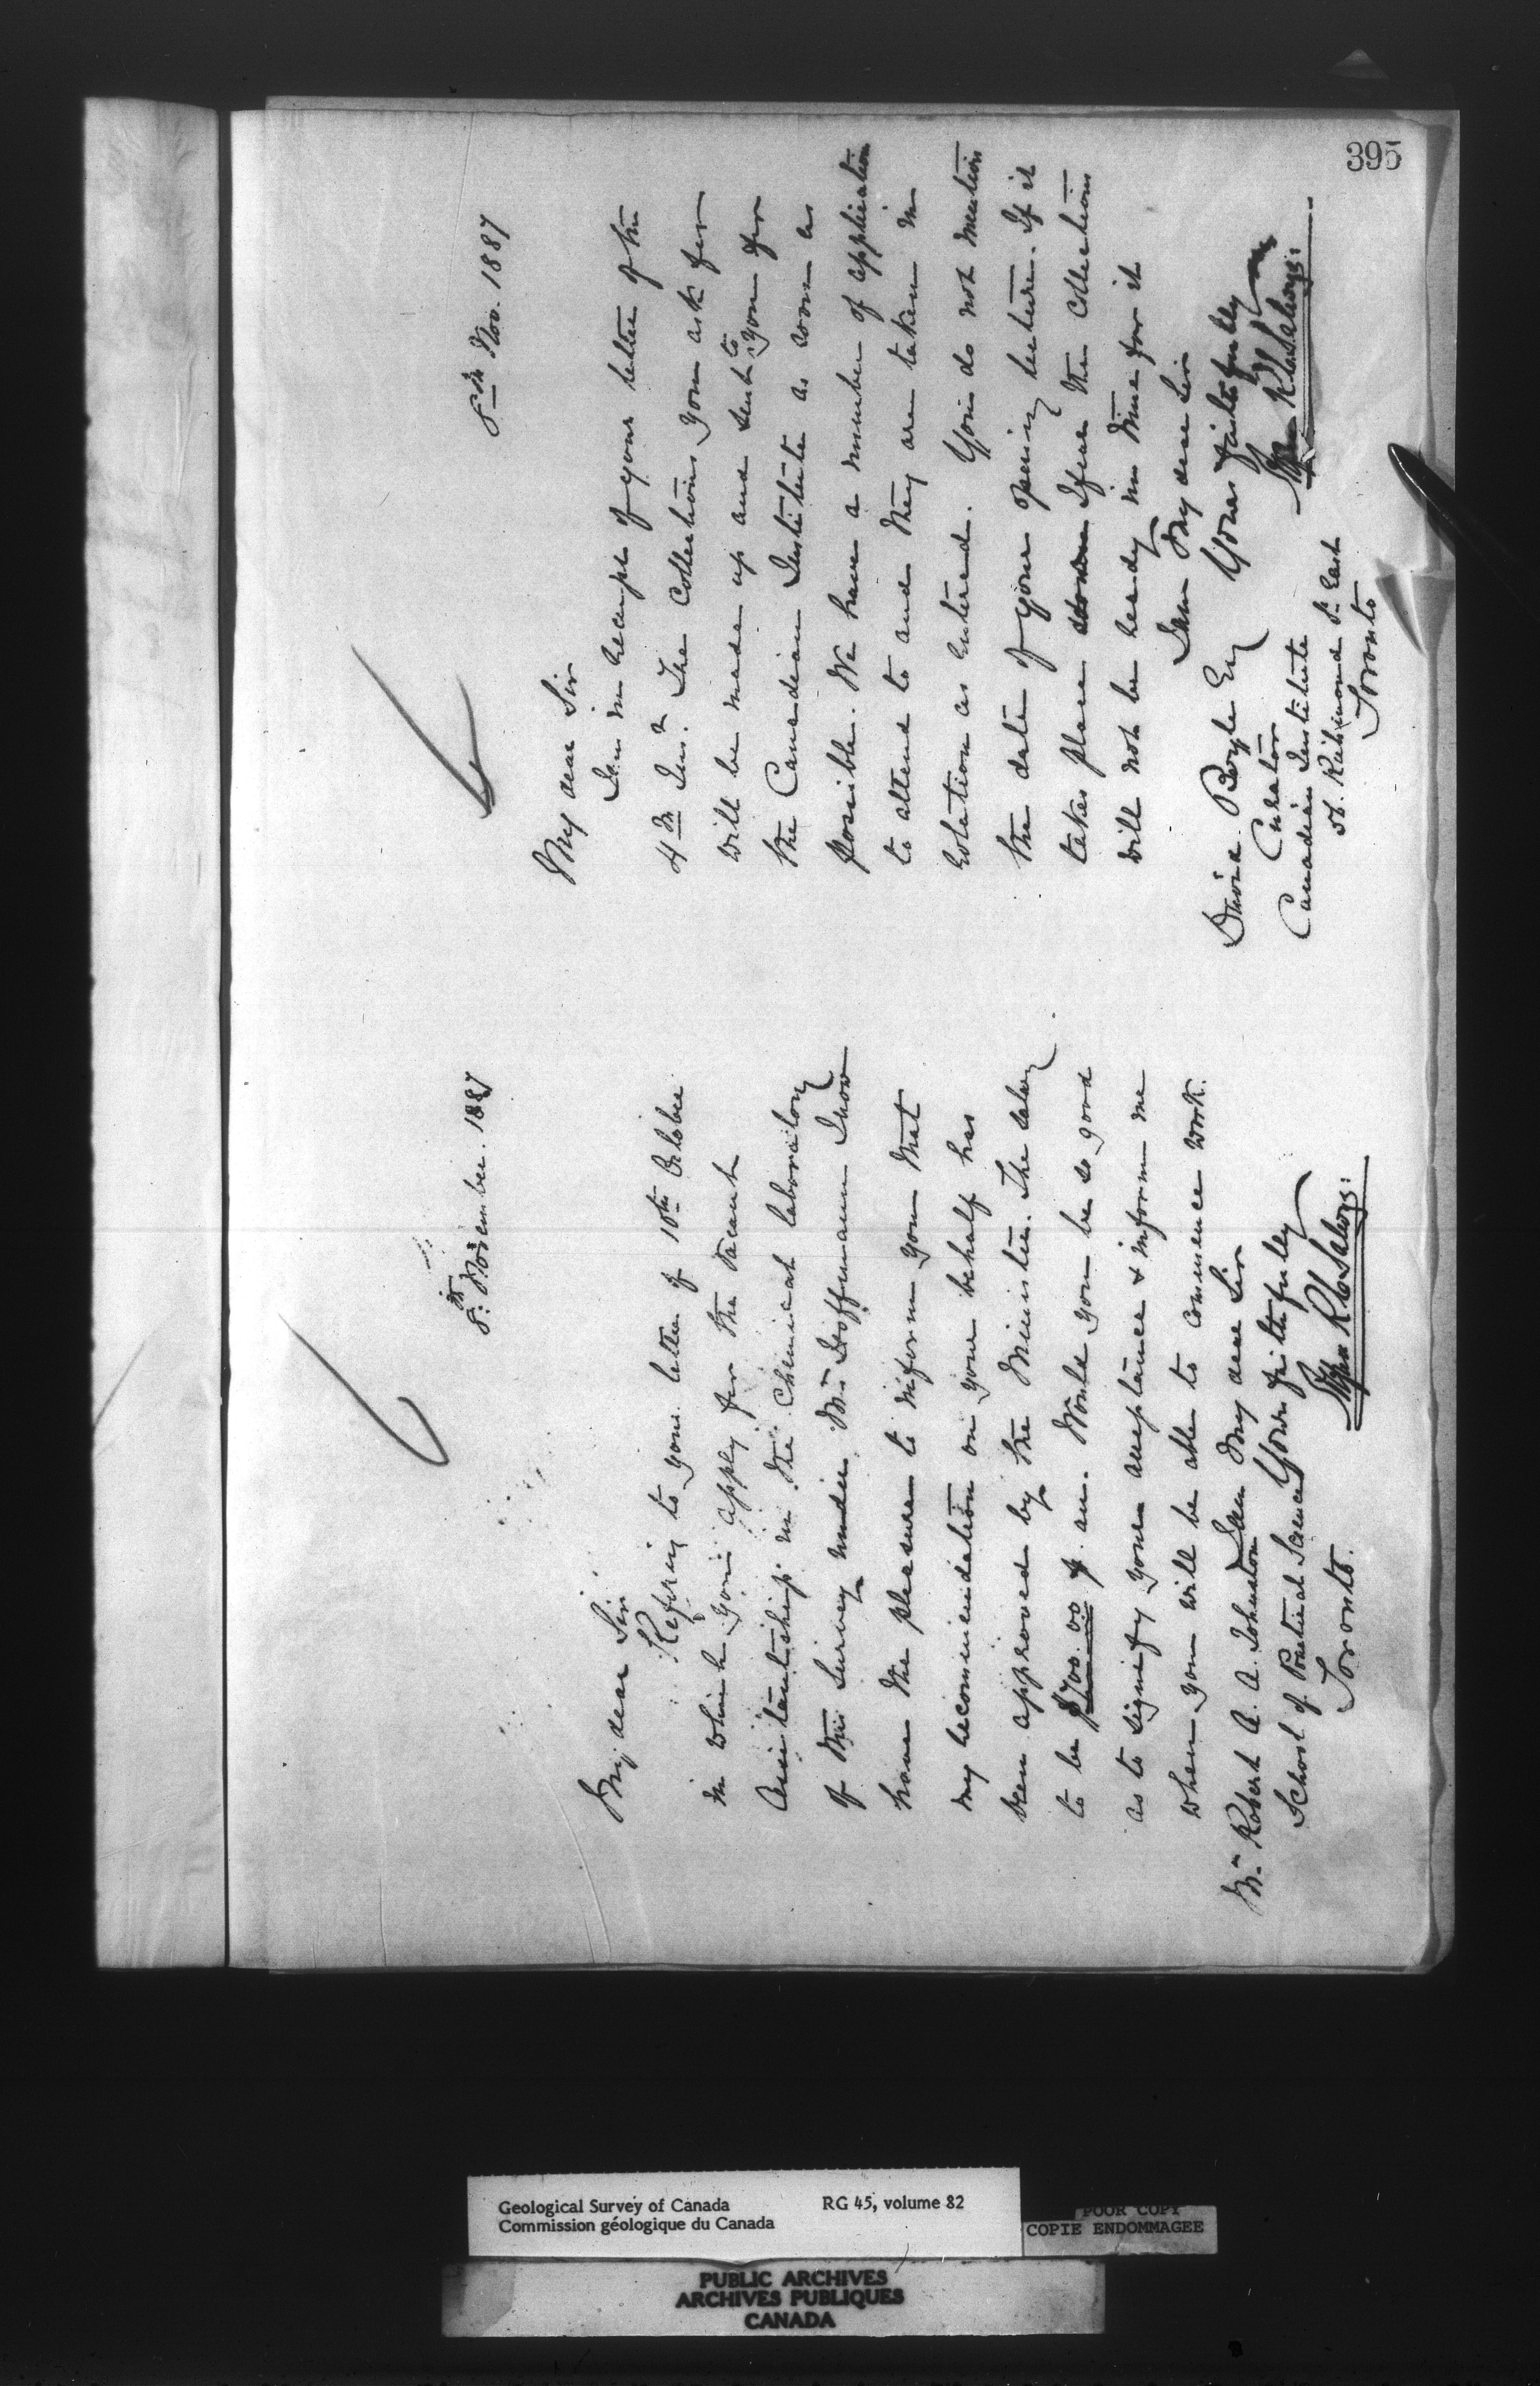 395
8th November. 1887
My dear Sir
Refering to your letter of 10th October
in which you apply for the vacant
Assistantship in the Chemical laboratory
of this Survey under Mr Hoffmann I now
have the pleasure to inform you that
my recommendation on your behalf has
been approved by the Minister. The salary
to be $700.00 p. an. Would you be so good
as to signify your acceptance & inform me
when you will be able to commence work.
I am My dear Sir
Yours faithfully
Mr Robert A. A. Johnston
School of Practical Science
Toronto.
8th Nov. 1887
My dear Sir
I am in receipt of your letter of the
4th Inst. The Collections you ask for
will be made up and sent to you for
the Canadian Institute as soon as
possible. We have a number of application
to attend to and they are taken in
rotation as entered. You do not mention
the date of your opening lecture. If it
takes place I fear the Collections
will not be ready in time for it
I am My dear Sir
Yours faithfully
David Boyle Esq
Curator
Canadian Institute
58. Richmond St. East
Toronto
Geological Survey of Canada
Commission géologique du Canada
RG 45, volume 82
POOR COPY
COPIE ENDOMMAGEE
PUBLIC ARCHIVES
ARCHIVES PUBLIQUES
CANADA